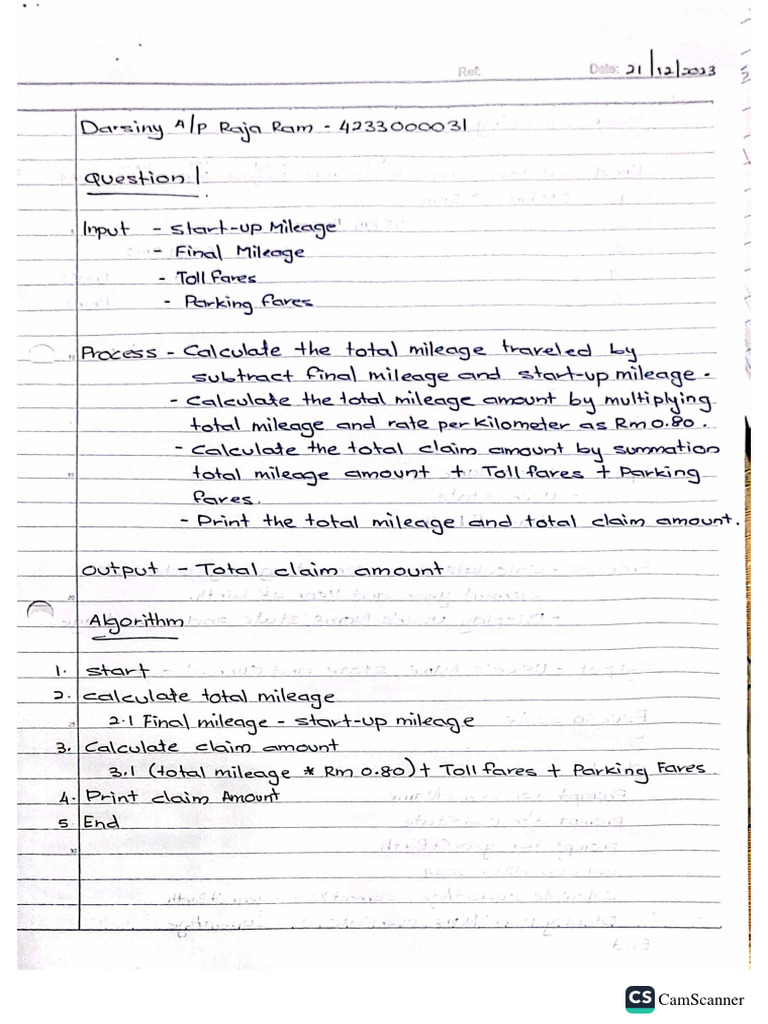 Ref: Date: 21/12/2023
Darsiny A/P Raja Ram - 4233000031
Question 1
Input - start-up Mileage
- Final Mileage
- Toll fares
- Parking fares
Process - Calculate the total mileage traveled by
subtract final mileage and start-up mileage.
- Calculate the total mileage amount by multiplying
total mileage and rate per kilometer as Rm 0.80.
- Calculate the total claim amount by summation
total mileage amount + Toll fares + Parking
fares.
- Print the total mileage and total claim amount.
Output - Total claim amount
Algorithm
1. start
2. calculate total mileage
2.1 Final mileage - start-up mileage
3. Calculate claim amount
3.1 (total mileage * Rm 0.80) + Toll fares + Parking Fares
4. Print claim Amount
5. End
CS CamScanner